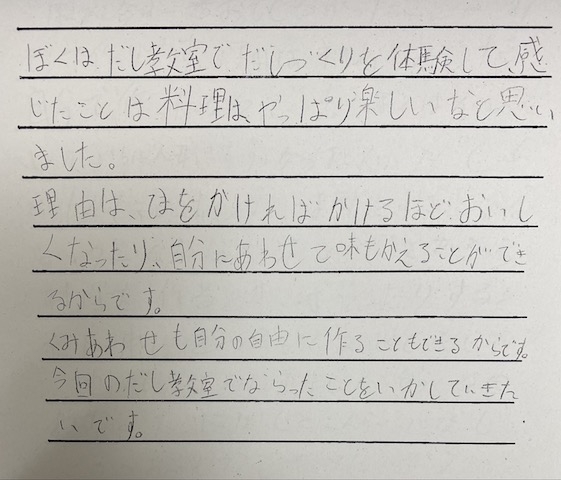 ぼくは、だし教室でだしづくりを体験して、感
じたことは料理は、やっぱり楽しいなと思い
ました。
理由は、ひまをかければかけるほど、おいし
くなったり、自分にあわせて味もかえることができ
るからです。
くみあわせも自分の自由に作ることもできるからです。
今回のだし教室でならったことをいかしていきた
いです。